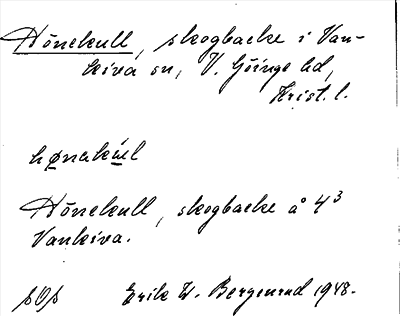 Hönekull, skogbacke i Van-
kiva sn, V. Göinge hd,
Krist. l.
hønakul
Hönekull, skogbacke å 4³
Vankiva.
Erik W. Bergenrud 1948.